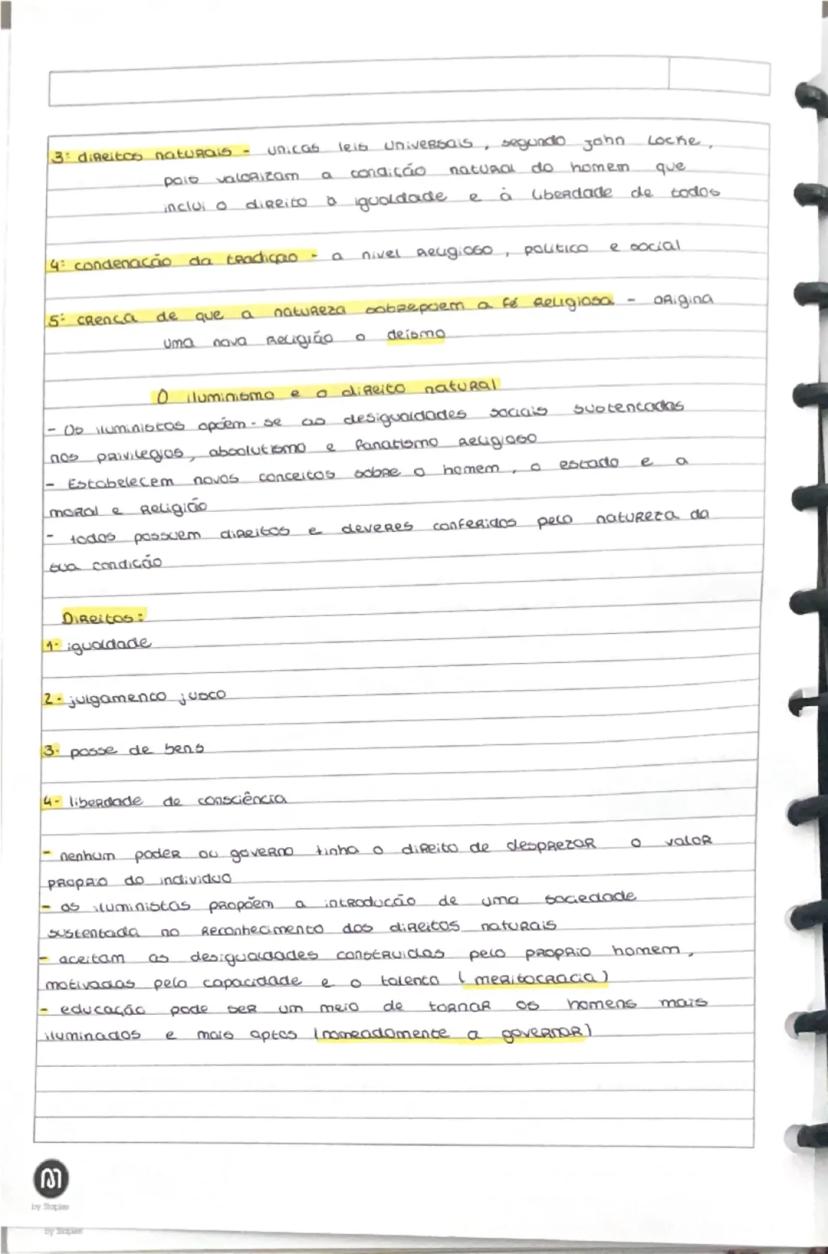 3º direitos naturais - unicas leis universais, segundo john Locke,
pois valorizam a condição natural do homem que
inclui o direito à igualdade e à liberdade de todos
4º condenação da tradição - a nivel religioso, politico e social
5º crença de que a natureza sobrepoem a fé religiosa - origina
uma nova religião o deismo
O iluminismo e o direito natural
- Os iluministas opõem-se as desigualdades sociais sustentadas
nos privilegios, absolutismo e fanatismo religioso
- Estabelecem novos conceitos sobre o homem, o estado e a
moral e religião
- todos possuem direitos e deveres conferidos pela natureza da
sua condição
Direitos:
1- igualdade
2- julgamento justo
3- posse de bens
4- liberdade de consciência
- nenhum poder ou governo tinha o direito de desprezar o valor
proprio do individuo
- os iluministas propõem a introducão de uma sociedade
sustentada no reconhecimento dos direitos naturais
- aceitam as desigualdades construidas pelo proprio homem,
motivadas pela capacidade e o talento (meritocracia)
- educação pode ser um meio de tornar os homens mais
iluminados e mais aptos (nomeadamente a governar)
by Staples
by Staples